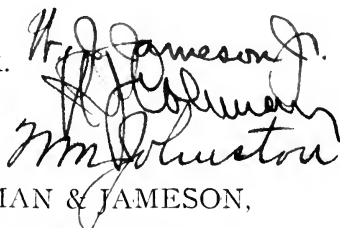 W. J. Jameson Jr.
R J Colman
Wm Johnston
MAN & JAMESON,